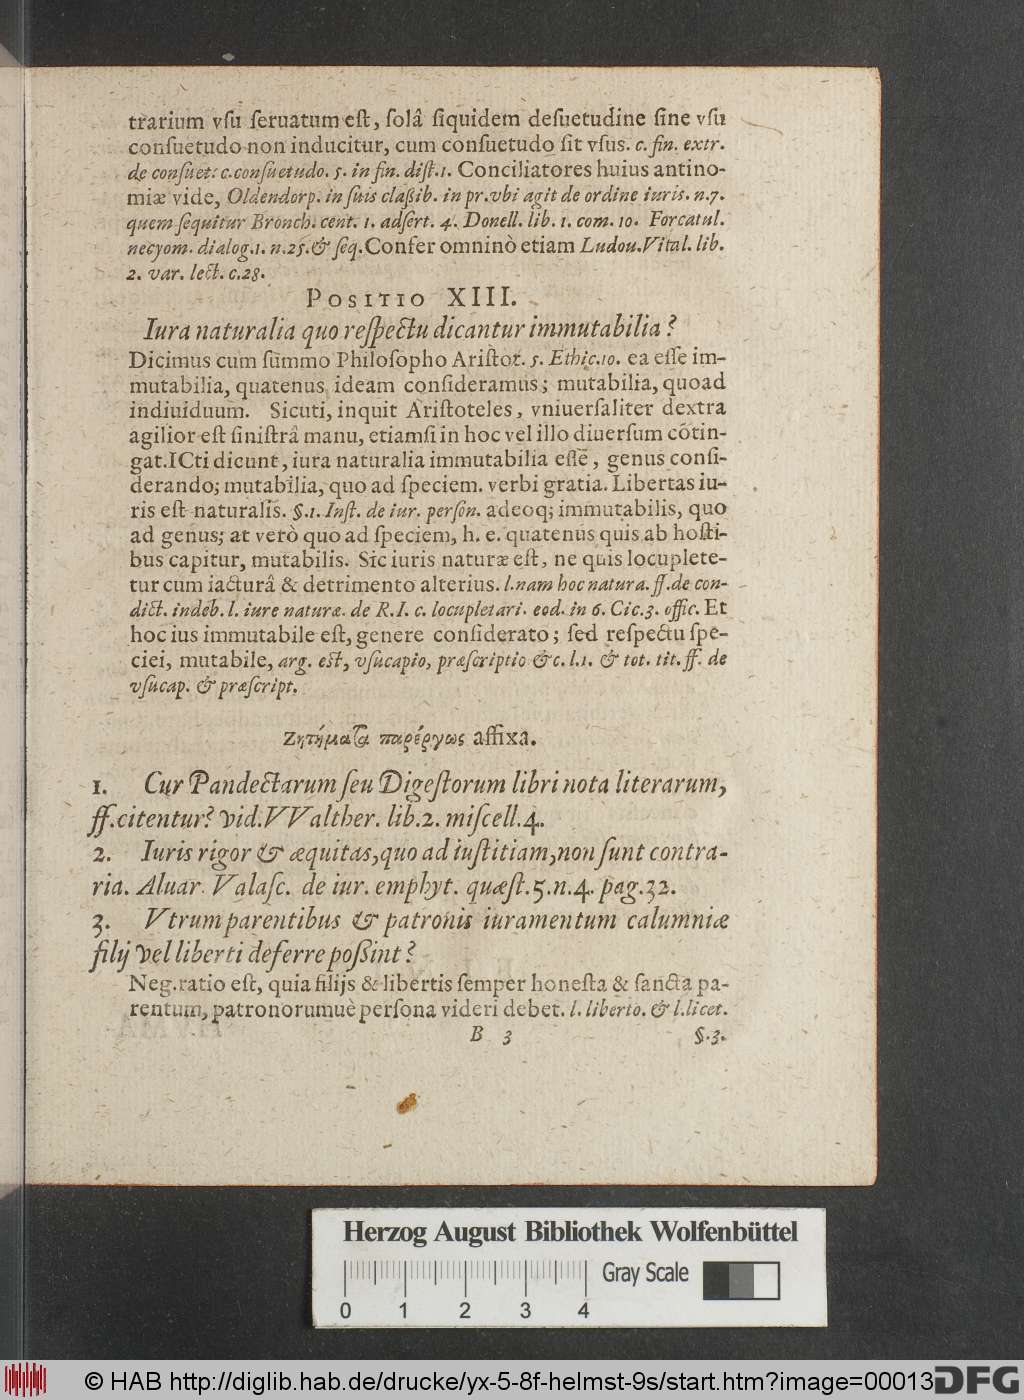 trarium vſu ſeruatum eſt, ſolâ ſiquidem deſuetudine ſine vſu
conſuetudo non inducitur, cum conſuetudo ſit vſus. c. fin. extr.
de conſuet: c. conſuetudo. 5. in fin. diſt. 1. Conciliatores huius antino-
miæ vide, Oldendorp. in ſuis claßib. in pr. vbi agit de ordine iuris. n. 7.
quem ſequitur Bronch. cent. 1. adſert. 4. Donell. lib. 1. com. 10. Forcatul.
necyom. dialog. 1. n. 25. & ſeq. Confer omninò etiam Ludou. Vital. lib.
2. var. lect. c. 28.
POSITIO XIII.
Iura naturalia quo reſpectu dicantur immutabilia?
Dicimus cum ſummo Philoſopho Ariſtot. 5. Ethic. 10. ea eſſe im-
mutabilia, quatenus ideam conſideramus; mutabilia, quoad
indiuiduum. Sicuti, inquit Ariſtoteles, vniuerſaliter dextra
agilior eſt ſiniſtrâ manu, etiamſi in hoc vel illo diuerſum cõtin-
gat. ICti dicunt, iura naturalia immutabilia eſſe, genus conſi-
derando; mutabilia, quo ad ſpeciem. verbi gratia. Libertas iu-
ris eſt naturalis. §. 1. Inſt. de iur. perſon. adeoq; immutabilis, quo
ad genus; at verò quo ad ſpeciem, h. e. quatenus quis ab hoſti-
bus capitur, mutabilis. Sic iuris naturæ eſt, ne quis locuplete-
tur cum iacturâ & detrimento alterius. l. nam hoc natura. ff. de con-
dict. indeb. l. iure naturæ. de R. I. c. locupletari. eod. in 6. Cic. 3. offic. Et
hoc ius immutabile eſt, genere conſiderato; ſed reſpectu ſpe-
ciei, mutabile, arg. est, vſucapio, præſcriptio &c. l. 1. & tot. tit. ff. de
vſucap. & præſcript.
Ζητήματα παρέργως affixa.
1. Cur Pandectarum ſeu Digeſtorum libri nota literarum,
ff. citentur? vid. VValther. lib. 2. miſcell. 4.
2. Iuris rigor & æquitas, quo ad iuſtitiam, non ſunt contra-
ria. Aluar. Valaſc. de iur. emphyt. quæſt. 5. n. 4. pag. 32.
3. Vtrum parentibus & patronis iuramentum calumniæ
filij vel liberti deferre poßint?
Neg. ratio eſt, quia filijs & libertis ſemper honeſta & ſancta pa-
rentum, patronorumuè perſona videri debet. l. liberto. & l. licet.
B 3 §. 3.
Herzog August Bibliothek Wolfenbüttel
Gray Scale
0 1 2 3 4
© HAB http://diglib.hab.de/drucke/yx-5-8f-helmst-9s/start.htm?image=00013
DFG